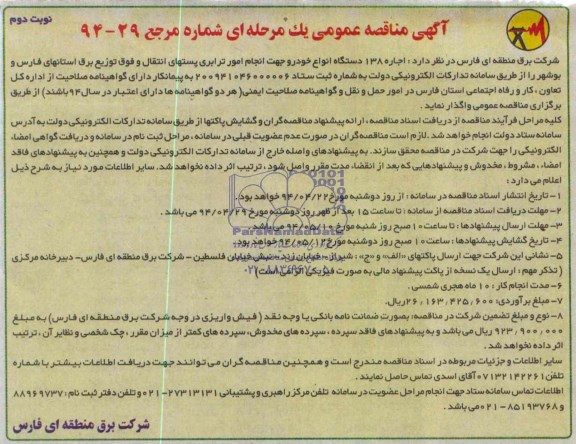 نوبت دوم
آگهی مناقصه عمومی یك مرحله‌ای شماره مرجع ۲۹-۹۴
شرکت برق منطقه ای فارس در نظر دارد : اجاره ۱۳۸ دستگاه انواع خودرو جهت انجام امور ترابری پستهای انتقال و فوق توزیع برق استانهای فارس و
بوشهر را از طریق سامانه تدارکات الکترونیکی دولت به شماره ثبت ستاد ۲۰۰۹۴۱۰۴۶۰۰۰۰۰۶ به پیمانکار دارای گواهینامه صلاحیت از اداره کل
تعاون ، کار و رفاه اجتماعی استان فارس در امور حمل و نقل و گواهینامه صلاحیت ایمنی( هر دو گواهینامه ها دارای اعتبار در سال۹۴باشند) از طریق
برگزاری مناقصه عمومی واگذار نماید .
کلیه مراحل فرآیند مناقصه از دریافت اسناد مناقصه ، ارائه پیشنهاد مناقصه‌گران و گشایش پاکتها از طریق سامانه تدارکات الکترونیکی دولت به آدرس
سامانه ستاد دولت انجام خواهد شد. لازم است مناقصه‌گران در صورت عدم عضویت قبلی در سامانه ، مراحل ثبت نام در سامانه و دریافت گواهی امضاء
الکترونیکی را جهت شرکت در مناقصه محقق سازند. به پیشنهادهای واصله خارج از سامانه تدارکات الکترونیکی دولت و همچنین به پیشنهادهای فاقد
امضاء ، مشروط ، مخدوش و پیشنهادهایی که بعد از انقضاء مدت مقرر واصل شود ، ترتیب اثر داده نخواهد شد. سایر اطلاعات مورد نیاز به شرح ذیل
اعلام می دارد :
۱- تاریخ انتشار اسناد مناقصه در سامانه : از روز دوشنبه مورخ ۹۴/۰۴/۲۲ خواهد بود.
۲- مهلت دریافت اسناد مناقصه از سامانه : تا ساعت ۱۵ بعد از ظهر روز دوشنبه مورخ ۹۴/۰۴/۲۹ می باشد .
۳-مهلت ارسال پیشنهادها : تا ساعت ۱۰صبح روز شنبه مورخ ۹۴/۰۵/۱۰ می باشد
۴- تاریخ گشایش پیشنهادها : ساعت ۱۰ صبح روز دوشنبه مورخ ۹۴/۰۵/۱۲ خواهد بود.
۵- نشانی این شرکت جهت ارسال پاکتهای «الف» و «ج» : شیراز - خیابان زند - نبش خیابان فلسطین - شرکت برق منطقه ای فارس- دبیرخانه مرکزی
( تذکر مهم : ارسال یک نسخه از پاکت پیشنهاد مالی به صورت فیزیکی الزامی است)
۶- مدت انجام کار : ۱۰ ماه هجری شمسی .
۷- مبلغ برآوردی: ۲۶,۱۶۳,۴۲۵,۶۰۰ریال.
۸- نوع و مبلغ تضمین شرکت در مناقصه: بصورت ضمانت نامه بانکی یا وجه نقد ( فیش واریزی در وجه شرکت برق منطقه ای فارس) به مبلغ
۹۲۳,۹۰۰,۰۰۰ ریال می باشد و به پیشنهادهای فاقد سپرده ، سپرده های مخدوش، سپرده های کمتر از میزان مقرر ، چک شخصی و نظایر آن ، ترتیب
اثر داده نخواهد شد .
سایر اطلاعات و جزئیات مربوطه در اسناد مناقصه مندرج است و همچنین مناقصه گران می توانند جهت دریافت اطلاعات بیشتر با شماره
تلفن ۰۷۱۳۲۱۴۲۲۶۱ آقای اسدی تماس حاصل نمایند .
اطلاعات تماس سامانه ستاد جهت انجام مراحل عضویت در سامانه تلفن مرکز راهبری و پشتیبانی ۲۷۳۱۳۱۳۱-۰۲۱ و تلفن دفتر ثبت نام : ۸۸۹۶۹۷۳۷
و ۸۵۱۹۳۷۶۸-۰۲۱ می باشد .
شرکت برق منطقه ای فارس
ParsNamadData
۰۲۱-۸۸۳۴۹۶۷۰-۵